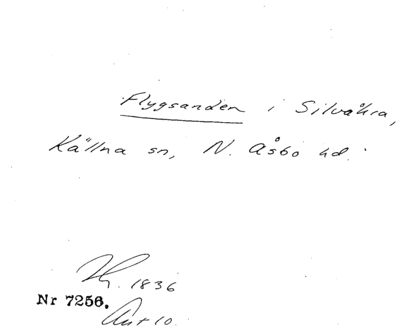 Flygsanden i Silvåkra,
Källna sn, N. Åsbo hd.
1836
Nr 7256.
10.